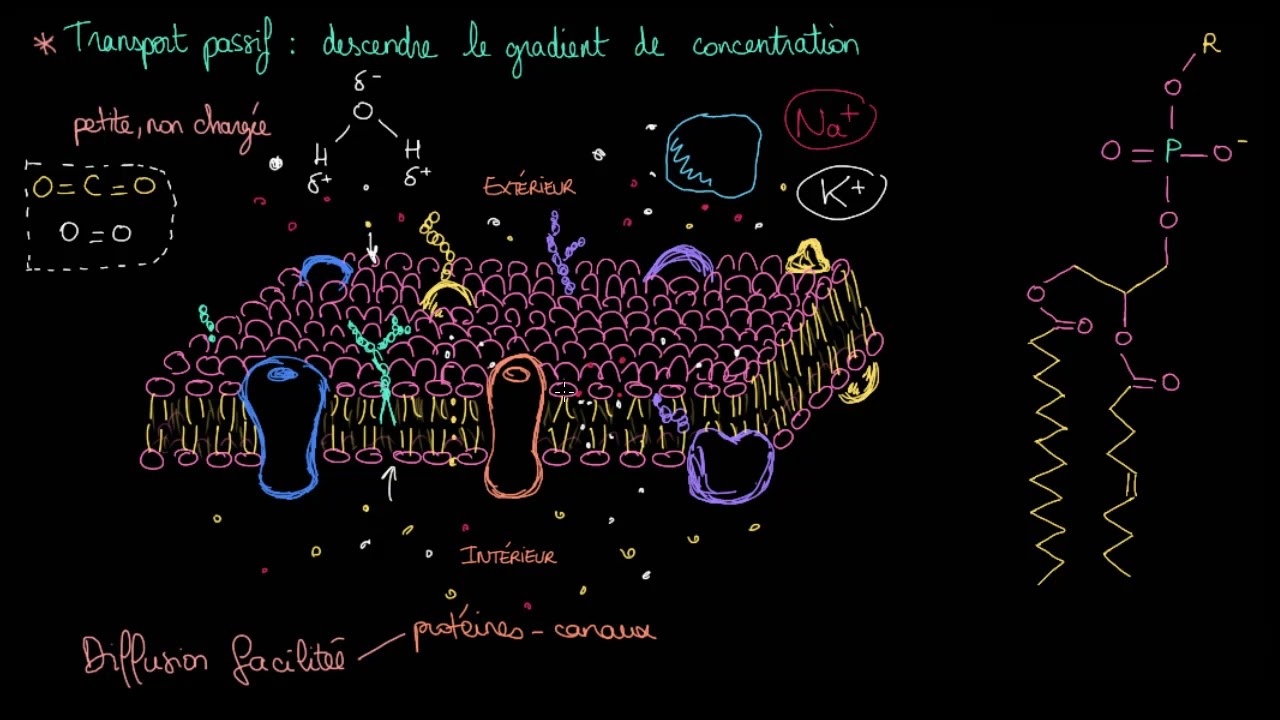 * Transport passif : descendre le gradient de concentration
petite, non chargée
δ-
O
H H
δ+ δ+
O=C=O
O=O
EXTÉRIEUR
Na+
K+
INTÉRIEUR
Diffusion facilitée
protéines-canaux
R
O
O=P-O-
O
O
O
O
O